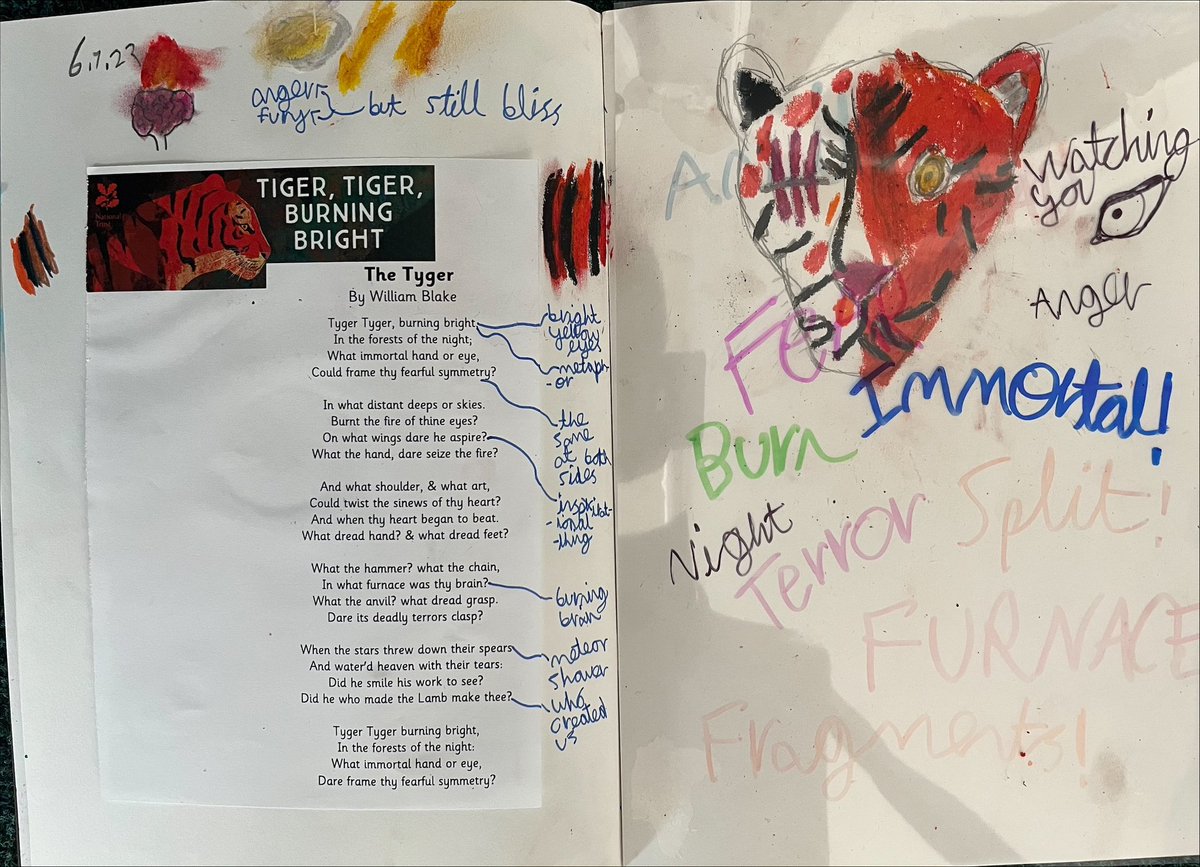 6.7.23
anger
fury
but still bliss
National
Trust
TIGER, TIGER,
BURNING
BRIGHT
The Tyger
By William Blake
Tyger Tyger, burning bright,
In the forests of the night;
What immortal hand or eye,
Could frame thy fearful symmetry?
In what distant deeps or skies.
Burnt the fire of thine eyes?
On what wings dare he aspire?
What the hand, dare seize the fire?
And what shoulder, & what art,
Could twist the sinews of thy heart?
And when thy heart began to beat.
What dread hand? & what dread feet?
What the hammer? what the chain,
In what furnace was thy brain?
What the anvil? what dread grasp.
Dare its deadly terrors clasp?
When the stars threw down their spears
And water'd heaven with their tears:
Did he smile his work to see?
Did he who made the Lamb make thee?
Tyger Tyger burning bright,
In the forests of the night:
What immortal hand or eye,
Dare frame thy fearful symmetry?
bright
yellow
eyes
metaph
-or
the
same
at both
sides
-ional
thing
burning
brain
meteor
shower
who
created
us
Watching
you
Anger
Immortal!
Burn
Night
Terror
Split!
FURNACE
Fragments!